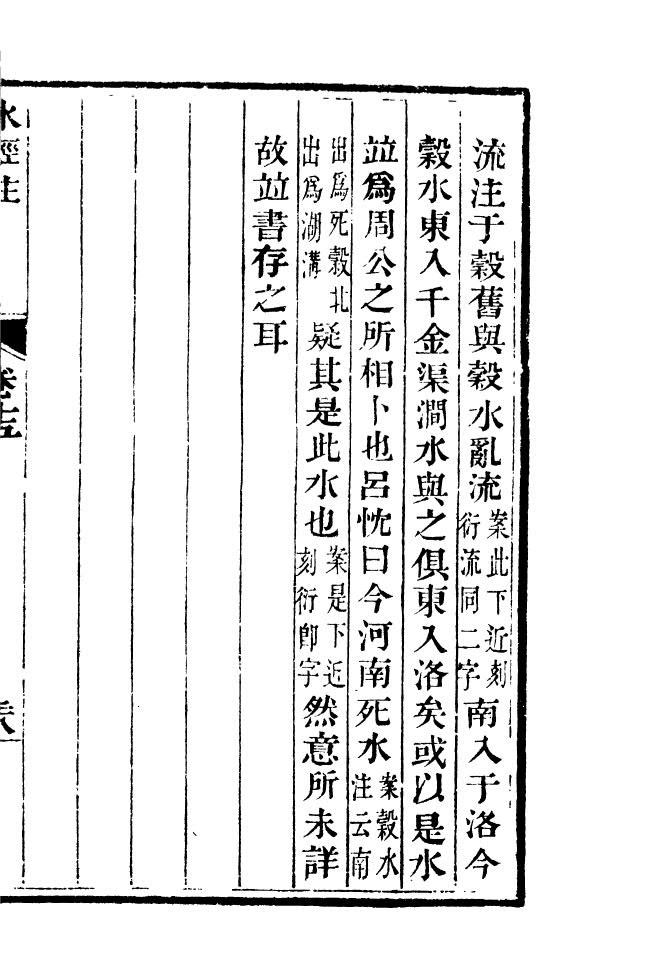 流注于穀舊與穀水亂流案此下近刻衍流同二字南入于洛今
穀水東入千金渠澗水與之俱東入洛矣或以是水
並爲周公之所相卜也呂忱曰今河南死水案穀水注云南
出爲死穀北出爲湖溝疑其是此水也案是下近刻衍卽字然意所未詳
故並書存之耳
水經注 卷十五